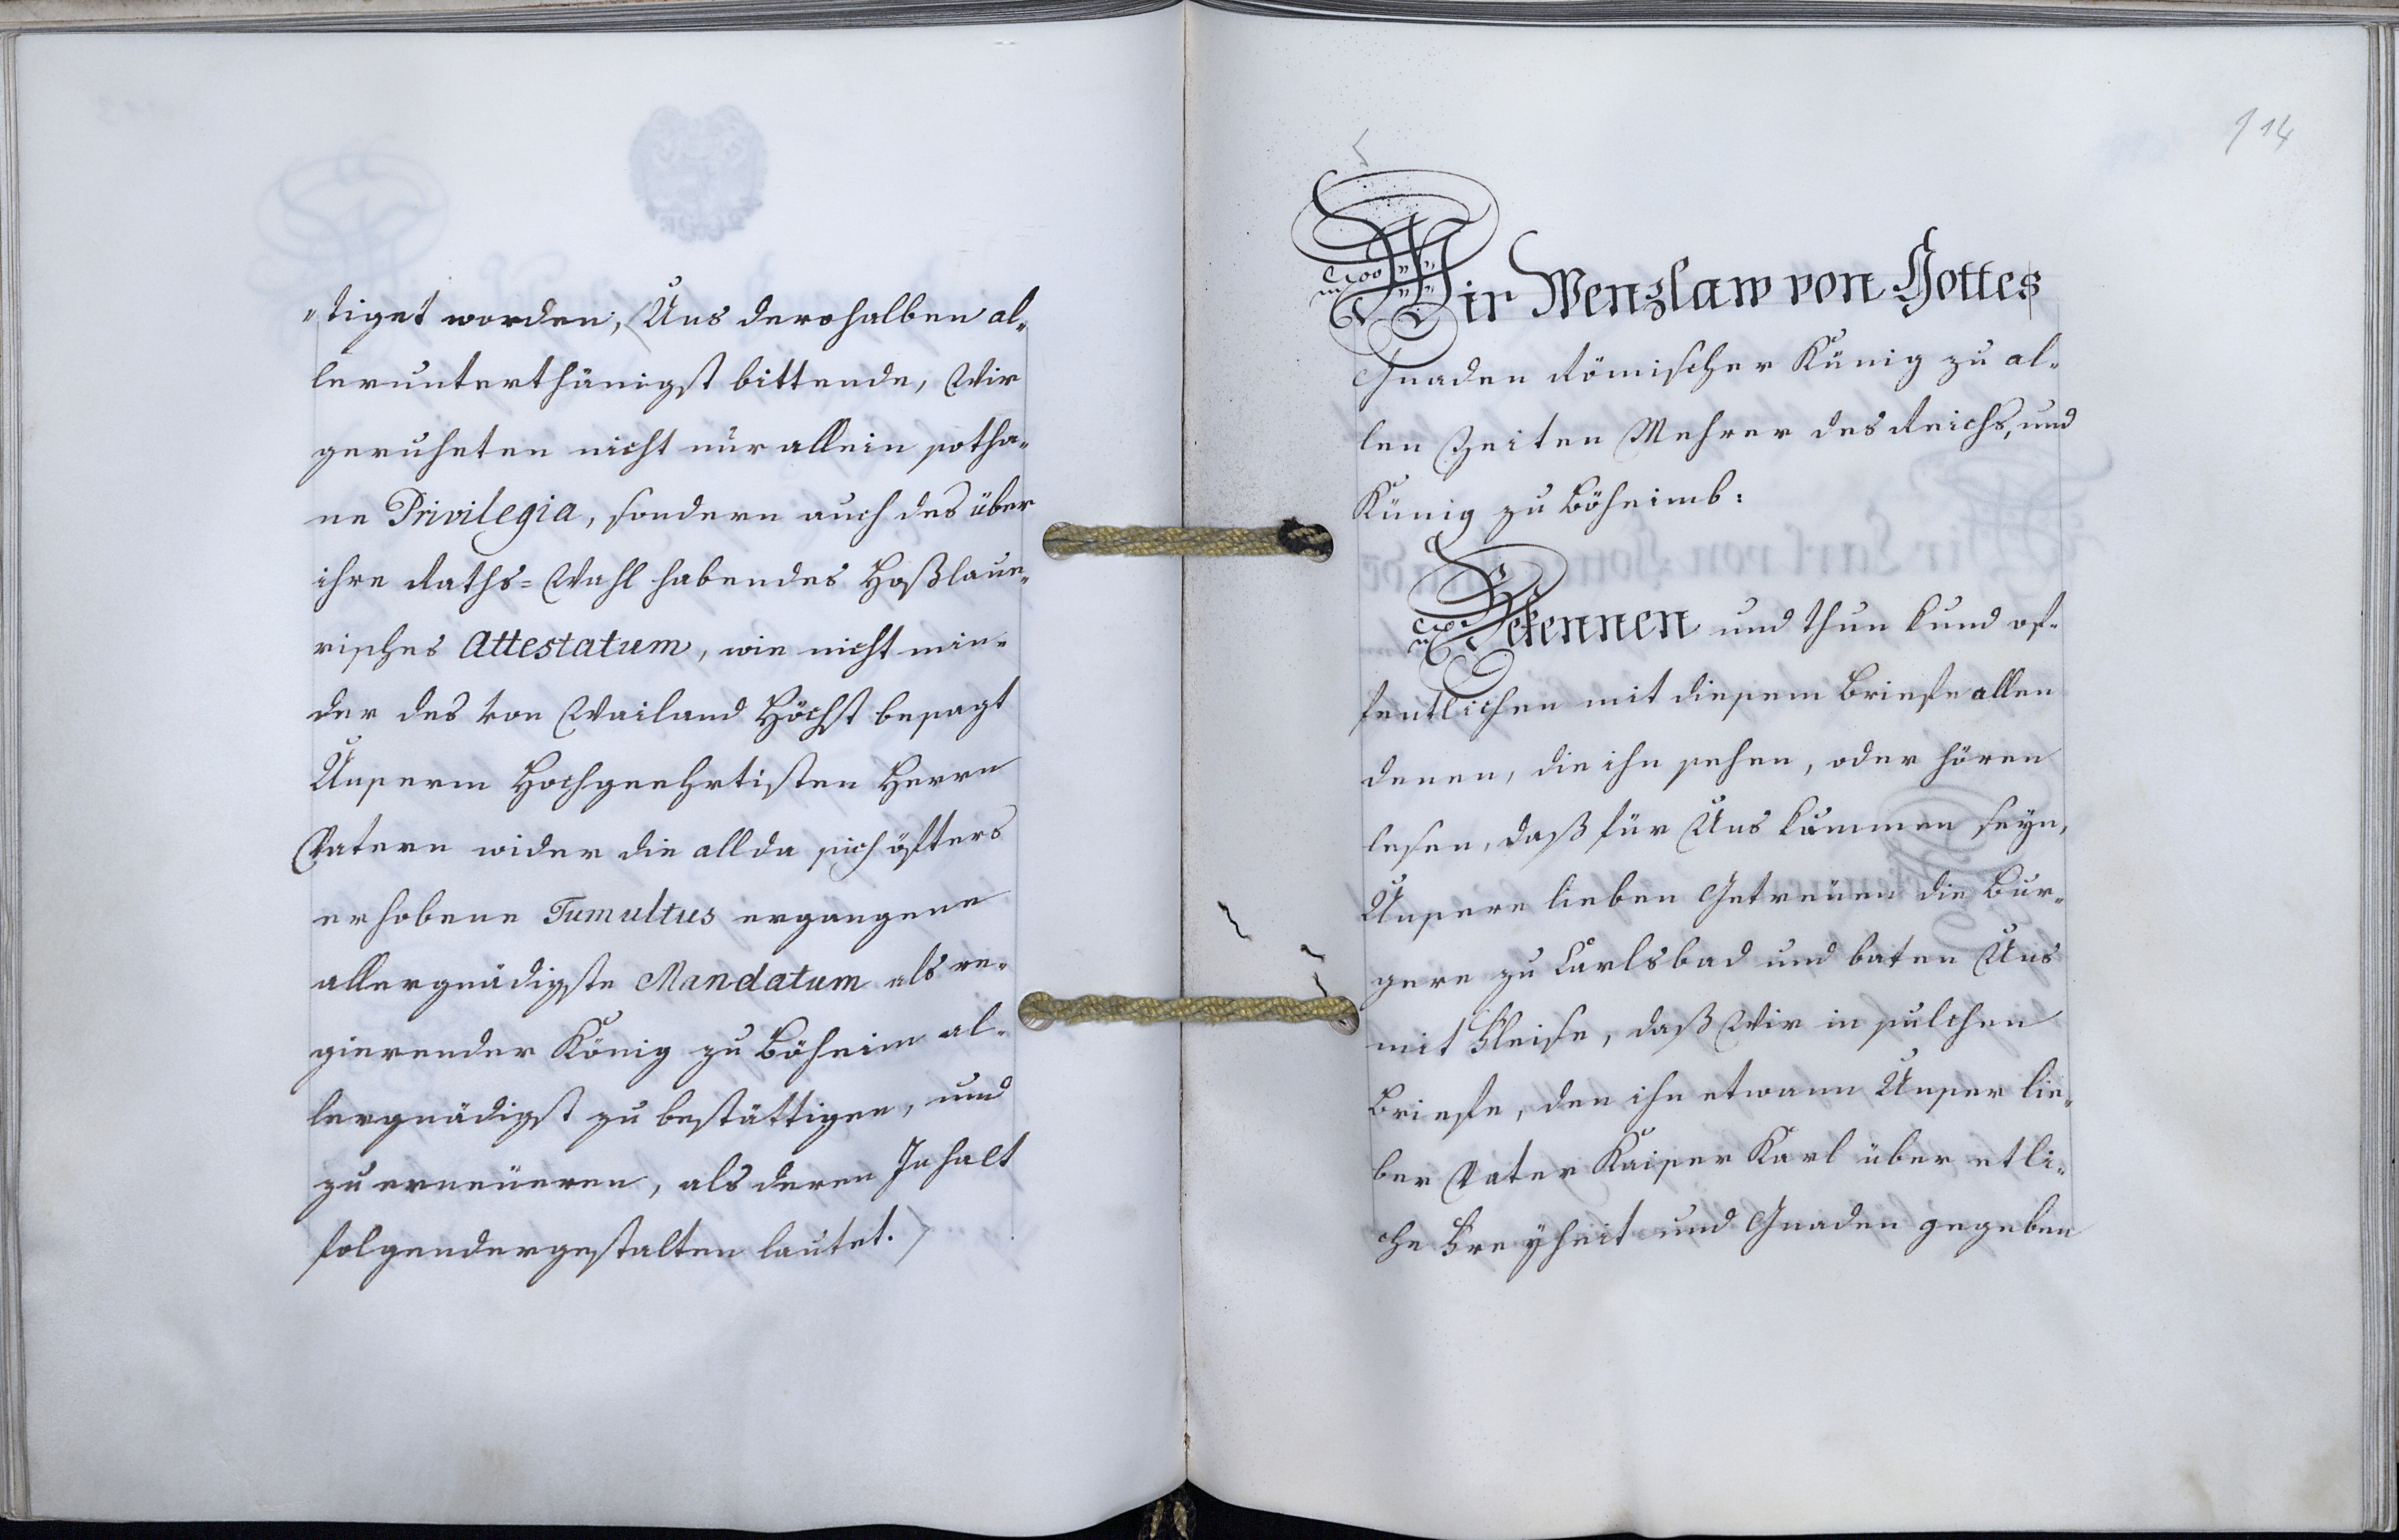 "tiget worden, Uns derohalben al„
lerunterthänigst bittende, Wir
geruheten nicht nur allein sotha„
ne Privilegia, sondern auch das über
ihre Raths=Wahl habendes Hoßlaue„
risches Attestatum, wie nicht min„
der das von Weiland Höchst besagt
Unserm Hochgeehrtisten Herrn
Vatern wider die allda sich öfters
erhobene Tumultus ergangene
allergnädigste Mandatum als re„
gierender König zu Böheim al„
lergnädigst zu bestättigen, und
zu erneüeren, als deren Inhalt
folgendergestalten lautet.
114
Wir Wenzlaw von Gottes
Gnaden Römischer Künig zu al„
len Zeiten Mehrer des Reichs, und
Künig zu Böheimb:
Bekennen und thun kund of„
fentlichen mit diesem Briefe allen
denen, die ihn sehen, oder hören
lesen, daß für Uns kummen seyn,
Unsere lieben Getreüen die Bur„
gere zu Carlsbad und baten Uns
mit Fleiße, daß Wir in sulchen
Briefe, den ihn etwann Unser lie„
ber Vater Kaiser Karl über etli„
che Freyheit und Gnaden gegeben